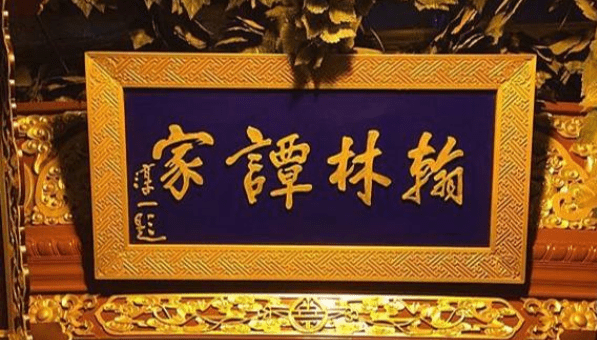 翰林譚家
淳一題